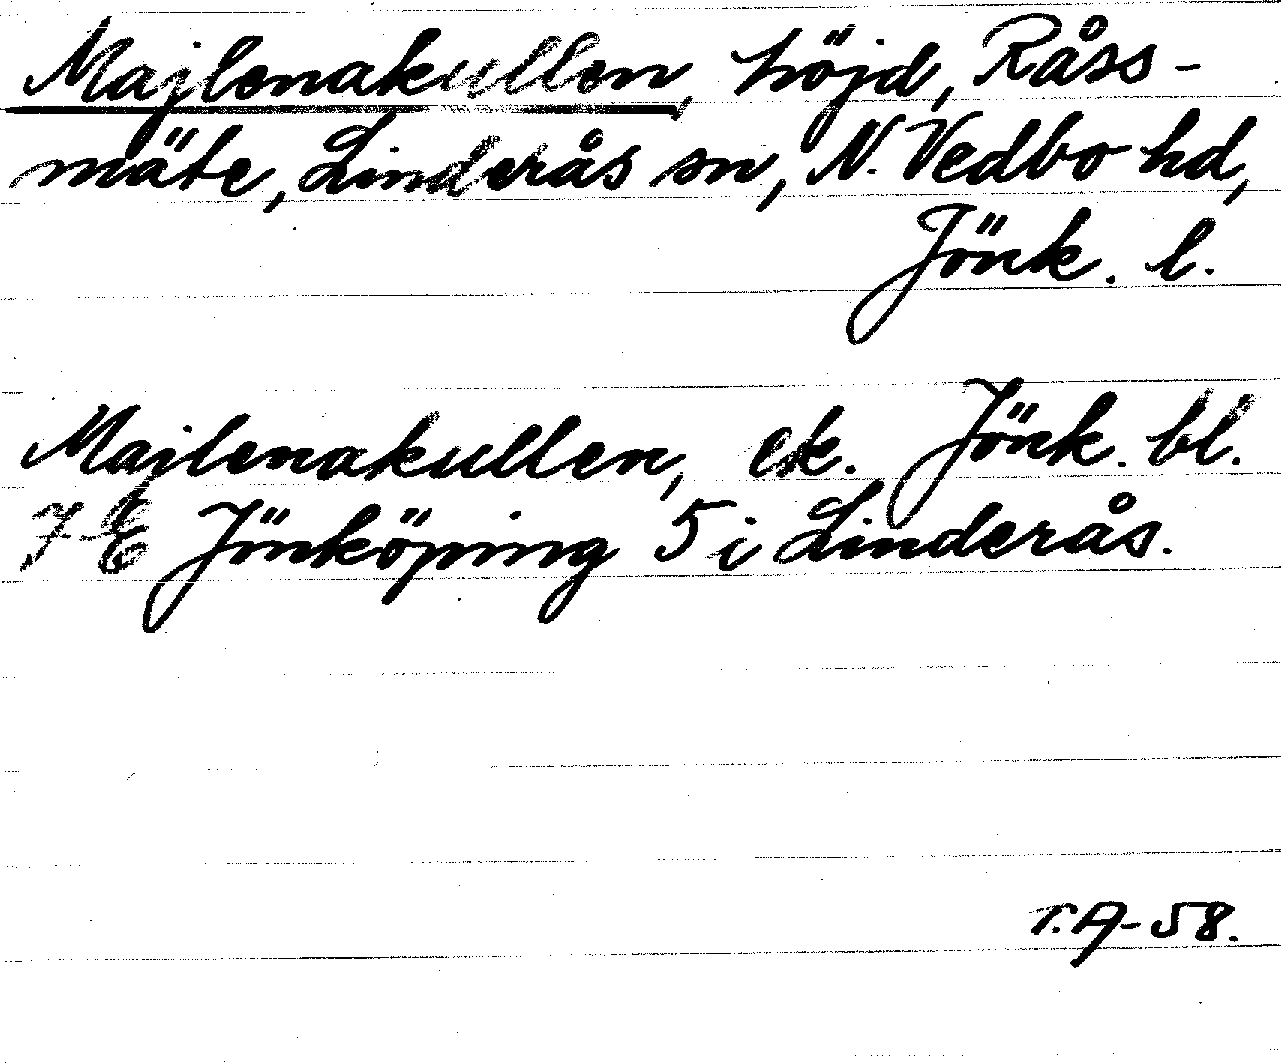 Majlenakullen, höjd, Råss-
mäte, Linderås sn, N. Vedbo hd,
Jönk. l.
Majlenakullen, ek. Jönk. bl.
7 E Jönköping 5 i Linderås.
T.A-58.